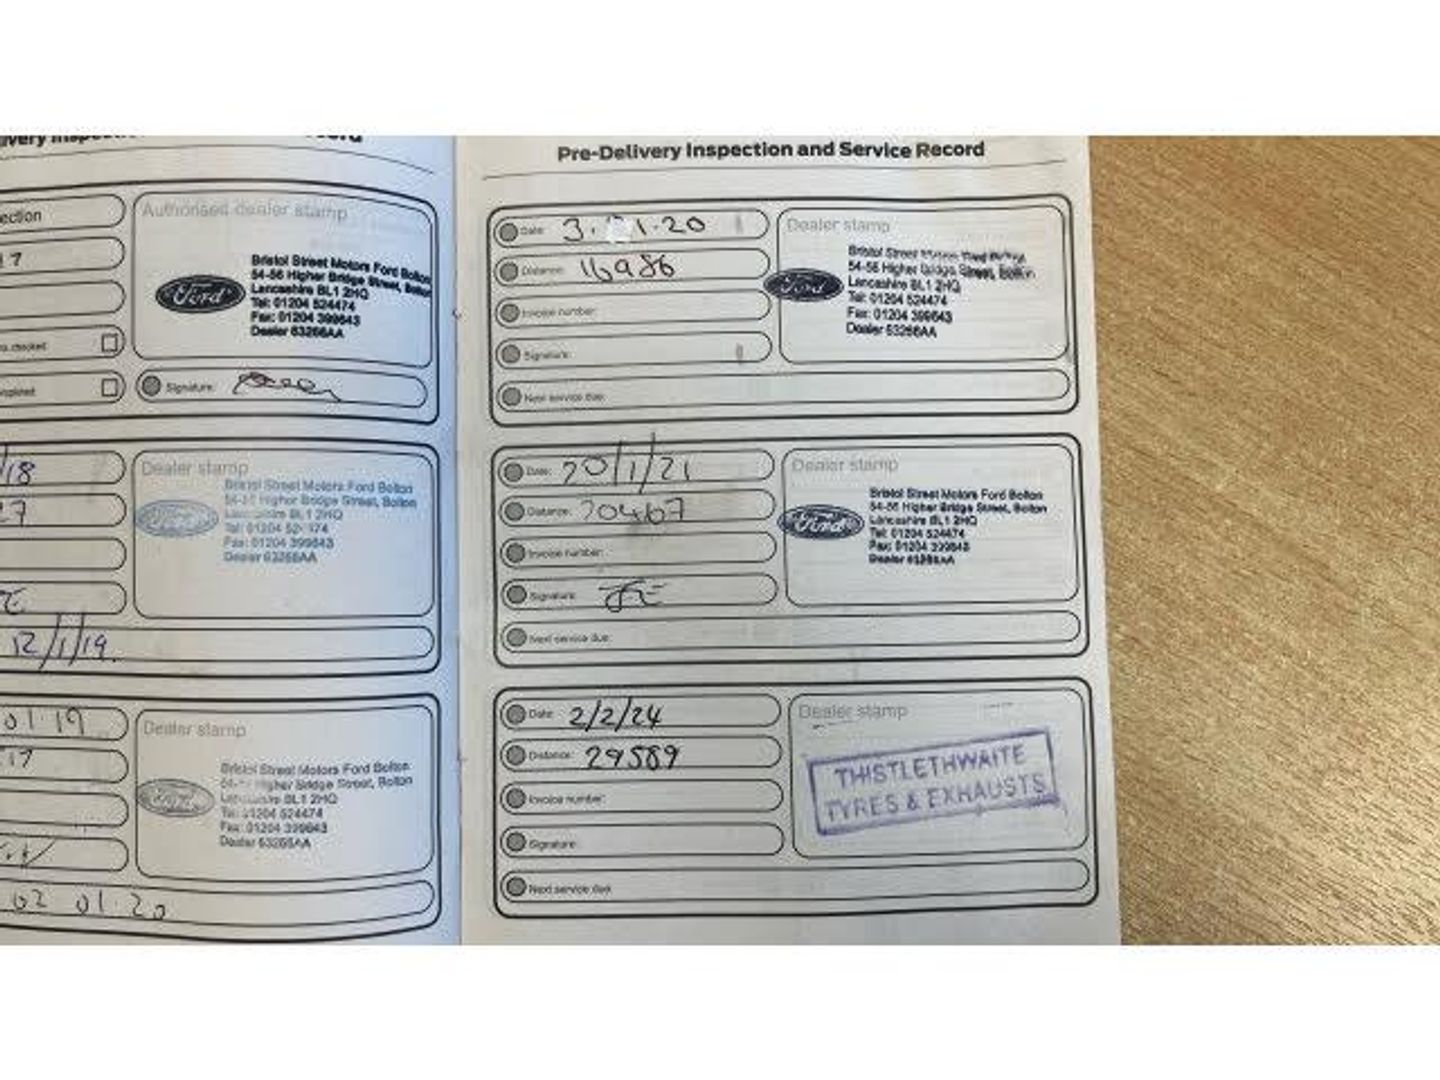 Pre-Delivery Inspection and Service Record
ection
17
o checked
Authorised dealer stamp
Ford
Bristol Street Motors Ford Bolton
54-56 Higher Bridge Street, Bolton
Lancashire BL1 2HQ
Tel: 01204 524474
Fax: 01204 399643
Dealer 63266AA
Signature:
/18
27
12/1/19.
Dealer stamp
Ford
Bristol Street Motors Ford Bolton
54-56 Higher Bridge Street, Bolton
Lancashire BL1 2HQ
Tel: 01204 524474
Fax: 01204 399643
Dealer 63266AA
01.19
17
02 01.20
Dealer stamp
Ford
Bristol Street Motors Ford Bolton
Higher Bridge Street, Bolton
Lancashire BL1 2HQ
Tel: 01204 524474
Fax: 01204 399643
Dealer 63266AA
Date: 3. 1.20
Distance: 16986
Invoice number:
Signature:
Next service due:
Dealer stamp
Ford
Bristol Street Motors Ford Bolton
54-56 Higher Bridge Street, Bolton
Lancashire BL1 2HQ
Tel: 01204 524474
Fax: 01204 399643
Dealer 63266AA
Date: 20/1/21
Distance: 20467
Invoice number:
Signature:
Next service due:
Dealer stamp
Ford
Bristol Street Motors Ford Bolton
54-56 Higher Bridge Street, Bolton
Lancashire BL1 2HQ
Tel: 01204 524474
Fax: 01204 399643
Dealer 63266AA
Date: 2/2/24
Distance: 29589
Invoice number:
Signature:
Next service due:
Dealer stamp
THISTLETHWAITE
TYRES & EXHAUSTS